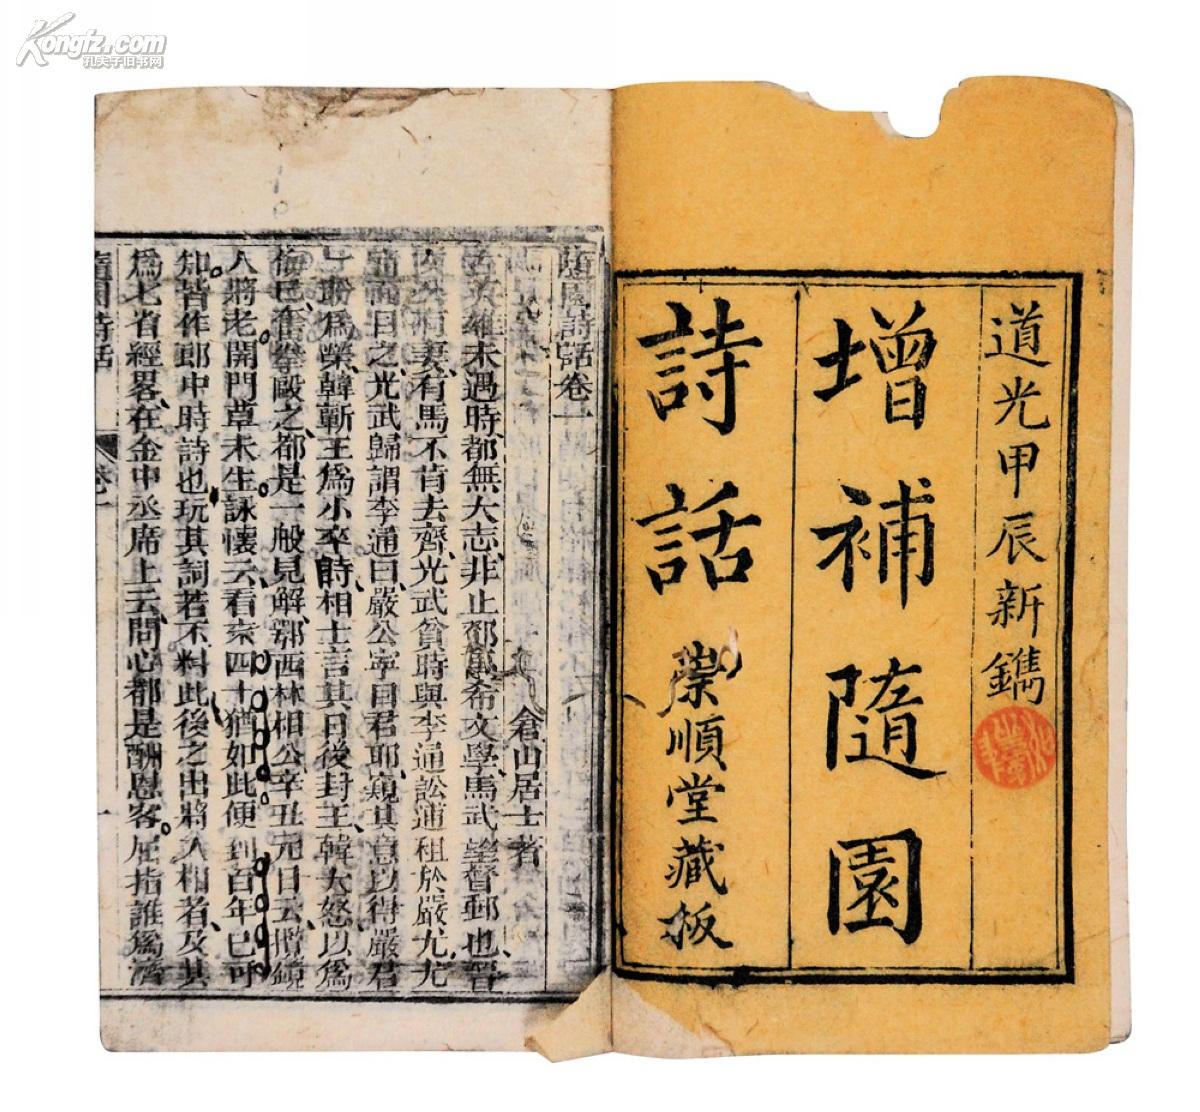 Kongfz.com
孔夫子旧书网
道光甲辰新鐫
增補隨園
詩話
崇順堂藏板
隨園詩話卷一
倉山居士著
古英雄未遇時都無大志非止鄧禹希文學馬武望督郵也晉
文公有妻有馬不肯去齊光武貧時與李通訟逋租於嚴尤尤
而目之光武歸謂李通曰嚴公寧目君耶窺其意以得嚴君
盼爲榮韓蘄王爲小卒時相士言其日後封王韓大怒以爲
侮己奮拳毆之都是一般見解鄂西林相公辛丑元日云攬鏡
人將老開門草未生詠懷云看來四十猶如此便到百年已可
知皆作郎中時詩也玩其詞若不料此後之出將入相者及其
爲七省經畧在金中丞席上云問心都是酬恩客屈指誰爲濟
隨園詩話
卷一
一